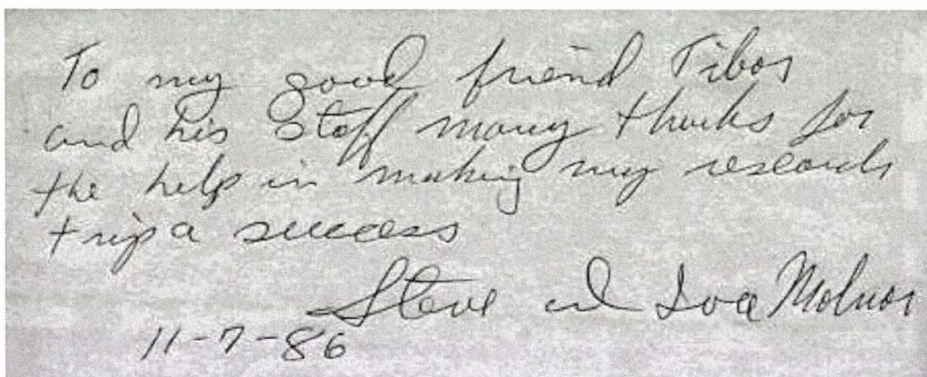 To my good friend Tibor
and his Staff many thanks for
the help in making my research
trip a success
Steve and Iva Molnar
11-7-86